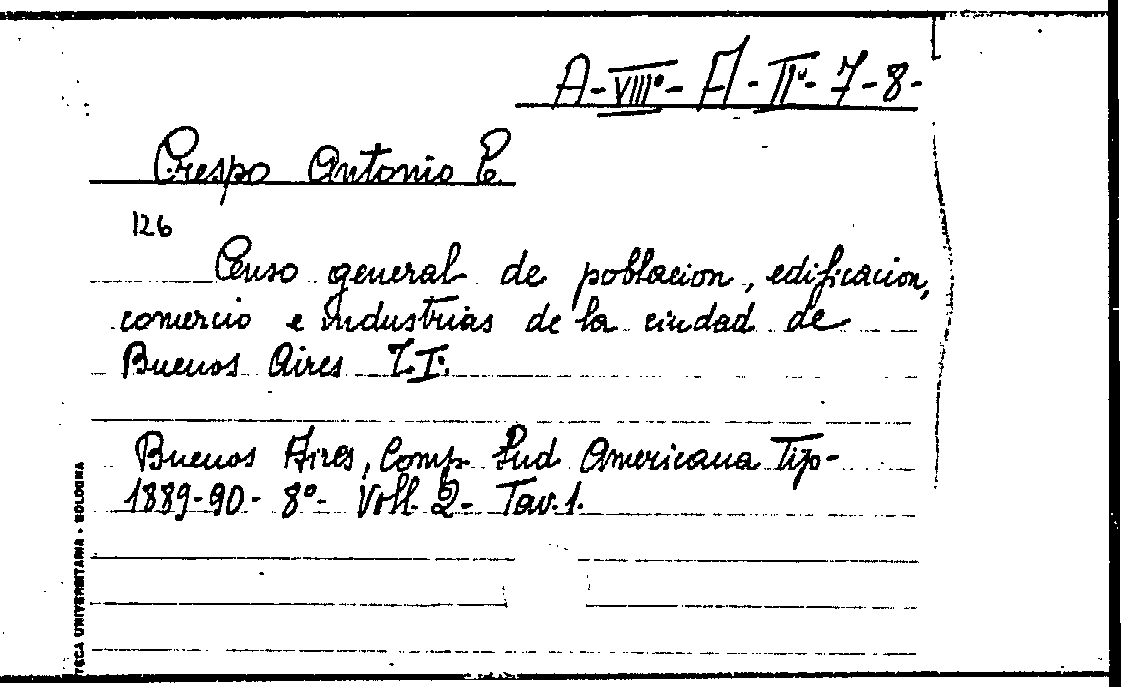 A-VIIIº- A-IIº-7-8-
Crespo Antonio C.
126
Censo general de poblacion, edificacion,
comercio e industrias de la ciudad de
Buenos Aires T.I.
Buenos Aires, Comp. Sud Americana Tip-
1889-90- 8º- Voll. 2- Tav. 1.
TECA UNIVERSITARIA - BOLOGNA